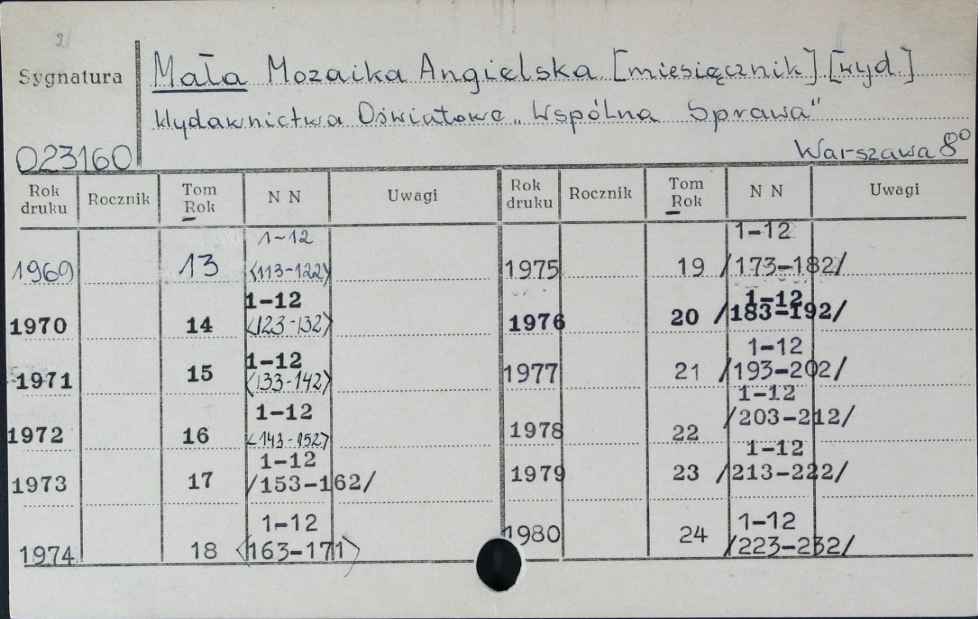 2
Sygnatura
Mała Mozaika Angielska [miesięcznik] [wyd.]
Wydawnictwa Oświatowe „Wspólna Sprawa"
023160
Warszawa 8°
Rok druku Rocznik Tom Rok N N Uwagi Rok druku Rocznik Tom Rok N N Uwagi
1969 13 1-12 <113-122> 1975 19 1-12 /173-182/
1970 14 1-12 <123-132> 1976 20 1-12 /183-192/
1971 15 1-12 <133-142> 1977 21 1-12 /193-202/
1972 16 1-12 <143-152> 1978 22 1-12 /203-212/
1973 17 1-12 /153-162/ 1979 23 1-12 /213-222/
1974 18 1-12 <163-171> 1980 24 1-12 /223-232/